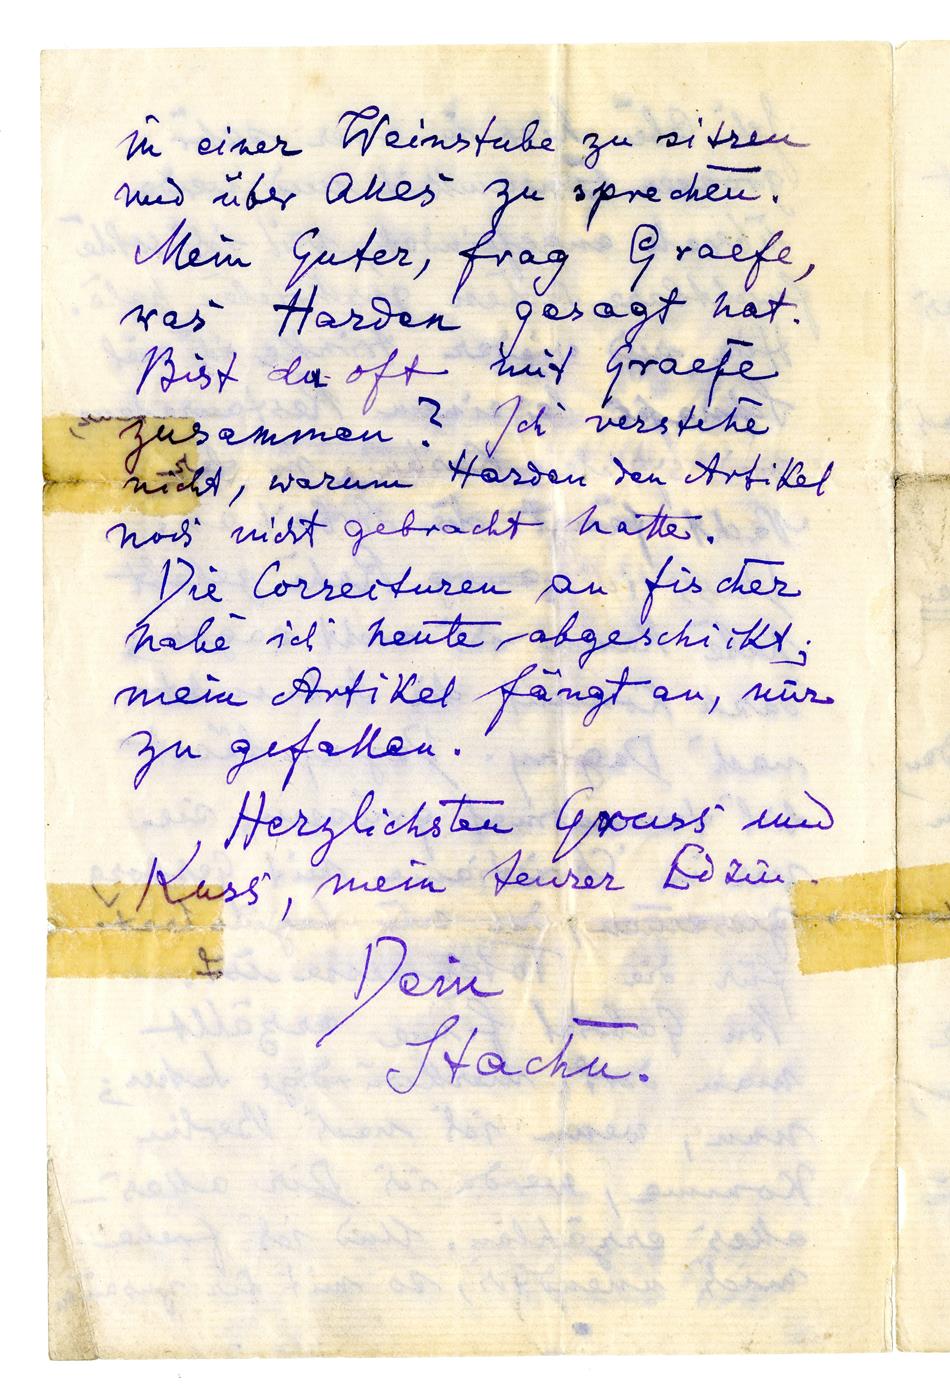 in einer Weinstube zu sitzen
und über Alles zu sprechen.
Mein Guter, frag Graefe,
was Harden gesagt hat.
Bist du oft mit Graefe
zusammen? Ich verstehe
nicht, warum Harden den Artikel
noch nicht gebracht hatte.
Die Correcturen an fischer
habe ich heute abgeschickt;
mein Artikel fängt an, mir
zu gefallen.
Herzlichsten Gruss und
Kuss, mein teurer
Dein
Stachu.